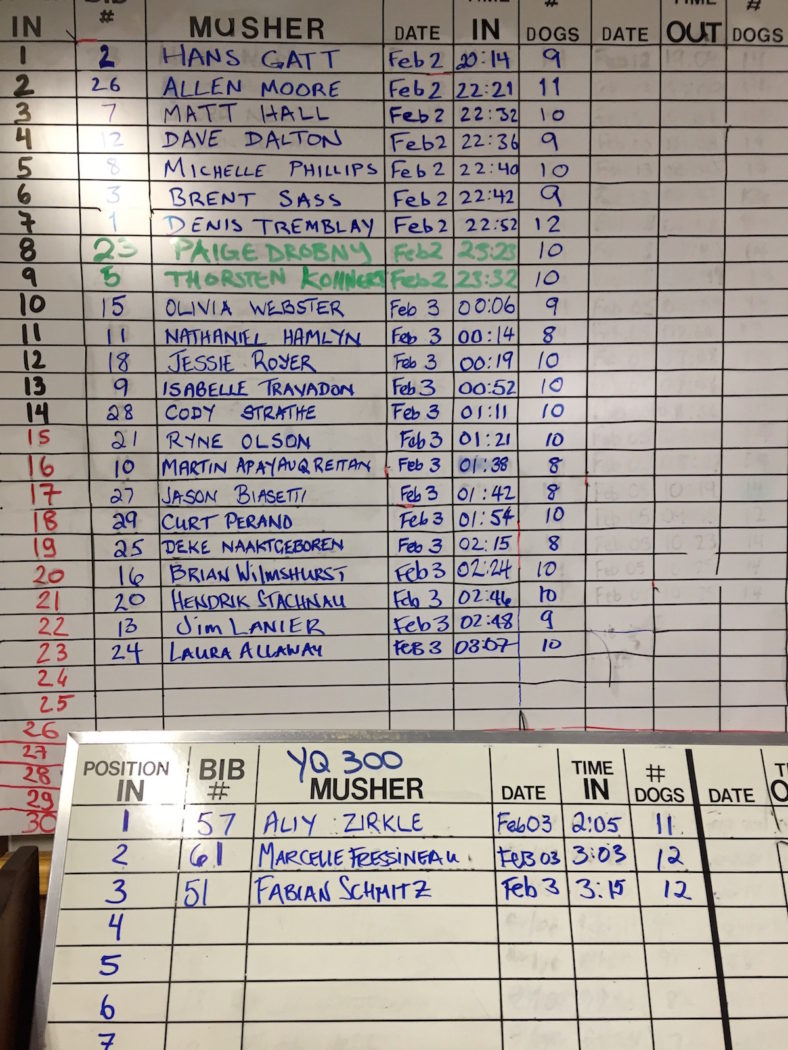 IN # MUSHER DATE IN DOGS DATE OUT DOGS
1 2 HANS GATT Feb 2 20:14 9
2 26 ALLEN MOORE Feb 2 22:21 11
3 7 MATT HALL Feb 2 22:32 10
4 12 DAVE DALTON Feb 2 22:36 9
5 8 MICHELLE PHILLIPS Feb 2 22:40 10
6 3 BRENT SASS Feb 2 22:42 9
7 1 DENIS TREMBLAY Feb 2 22:52 12
8 23 PAIGE DROBNY Feb 2 23:23 10
9 5 THORSTEN KOHNERT Feb 2 23:32 10
10 15 OLIVIA WEBSTER Feb 3 00:06 9
11 11 NATHANIEL HAMLYN Feb 3 00:14 8
12 18 JESSIE ROYER Feb 3 00:19 10
13 9 ISABELLE TRAVADON Feb 3 00:52 10
14 28 CODY STRATHE Feb 3 01:11 10
15 21 RYNE OLSON Feb 3 01:21 10
16 10 MARTIN APAYAUQ REITAN Feb 3 01:38 8
17 27 JASON BIASETTI Feb 3 01:42 8
18 29 CURT PERANO Feb 3 01:54 10
19 25 DEKE NAAKTGEBOREN Feb 3 02:15 8
20 16 BRIAN WILMSHURST Feb 3 02:24 10
21 20 HENDRIK STACHNAU Feb 3 02:46 10
22 13 Jim LANIER Feb 3 02:48 9
23 24 LAURA ALLAWAY FEB 3 03:07 10
24
25
26
27
28
29
30
YQ 300
POSITION IN BIB # MUSHER DATE TIME IN # DOGS DATE
1 57 ALIY ZIRKLE Feb 03 2:05 11
2 61 MARCELLE FRESSINEAU FEB 03 3:03 12
3 51 FABIAN SCHMITZ Feb 3 3:15 12
4
5
6
7